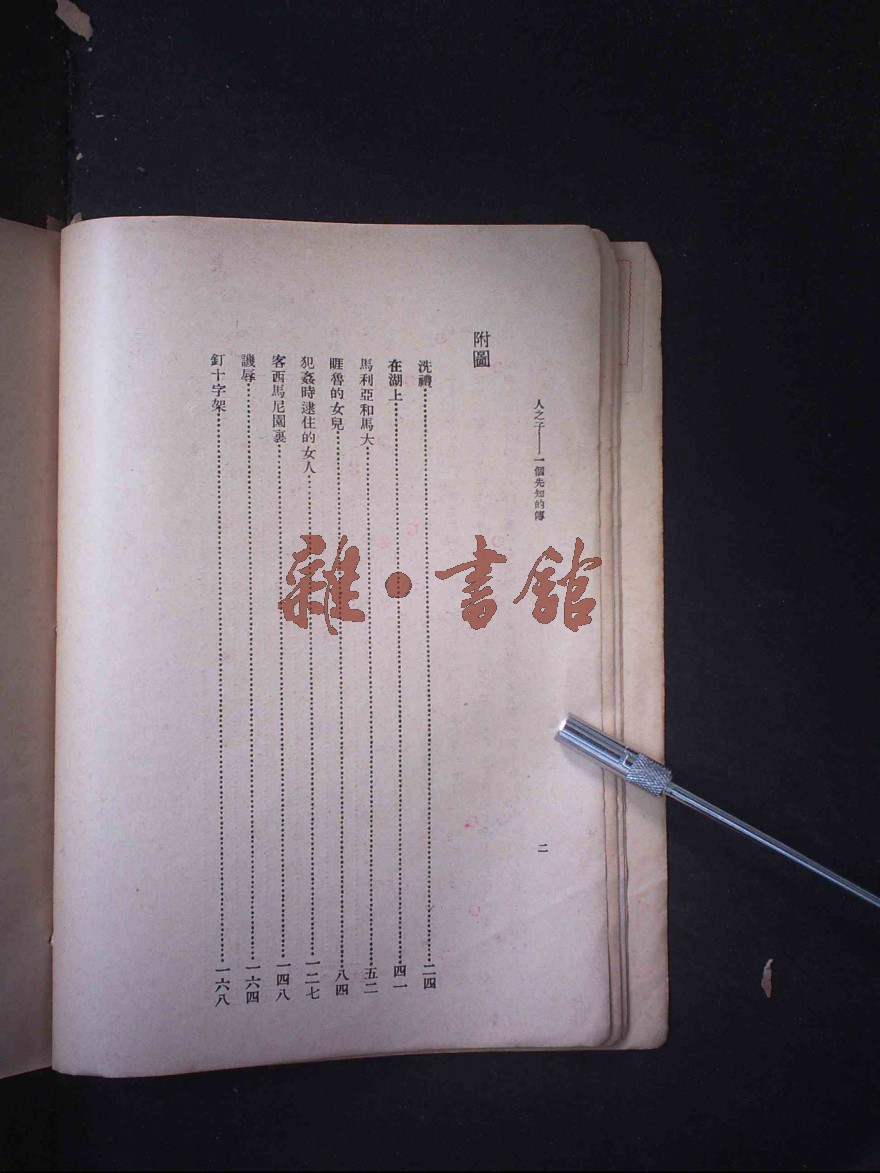 人之子——一個先知的傳
二
附圖
洗禮……二四
在湖上……四一
馬利亞和馬大……五二
睚魯的女兒……八四
犯姦時逮住的女人……一二七
客西馬尼園裏……一四八
譏辱……一六四
釘十字架……一六八
雜·書館